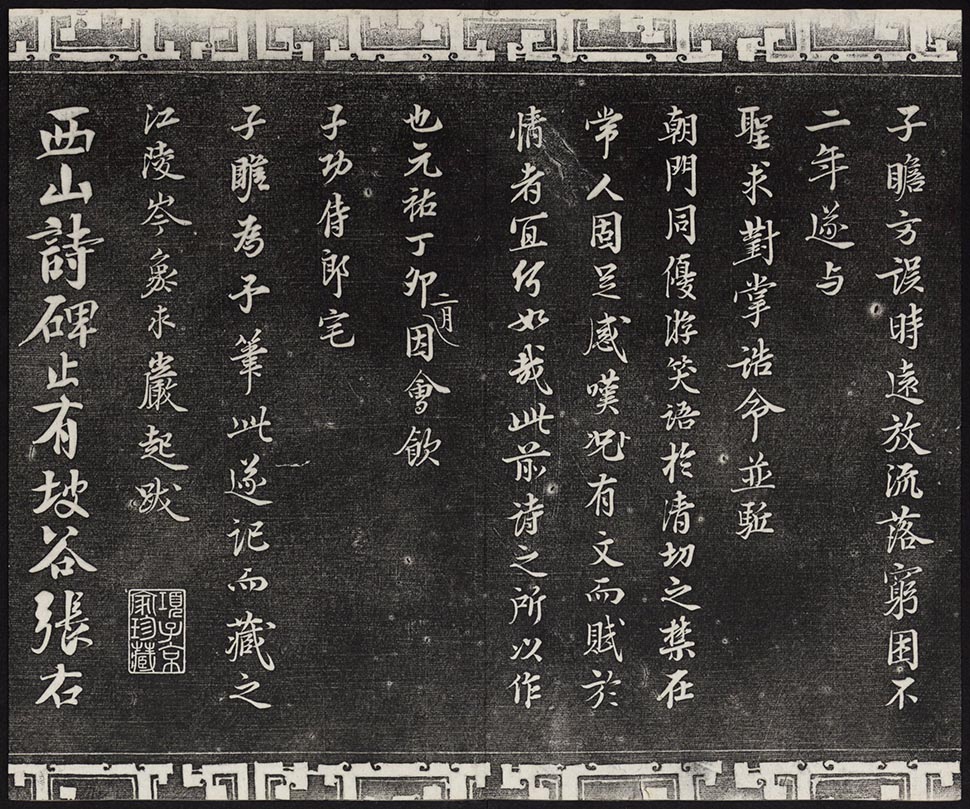 子瞻方誤時遠放流落窮困不
二年遂与
聖求對掌誥命並駈
朝門同優游笑語於清切之禁在
常人固足感嘆况有文而賦於
情者宜何如哉此前诗之所以作
也元祐丁夘二月因會飲
子功侍郎宅
子瞻為予筆此遂記而藏之
江陵岑象求巖起跋
項子京
家珍藏
西山詩碑止有坡谷張右